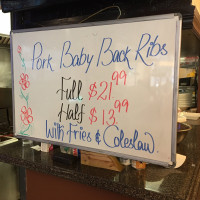 Pork Baby Back Ribs
Full $21.99
Half $13.99
With Fries & Coleslaw